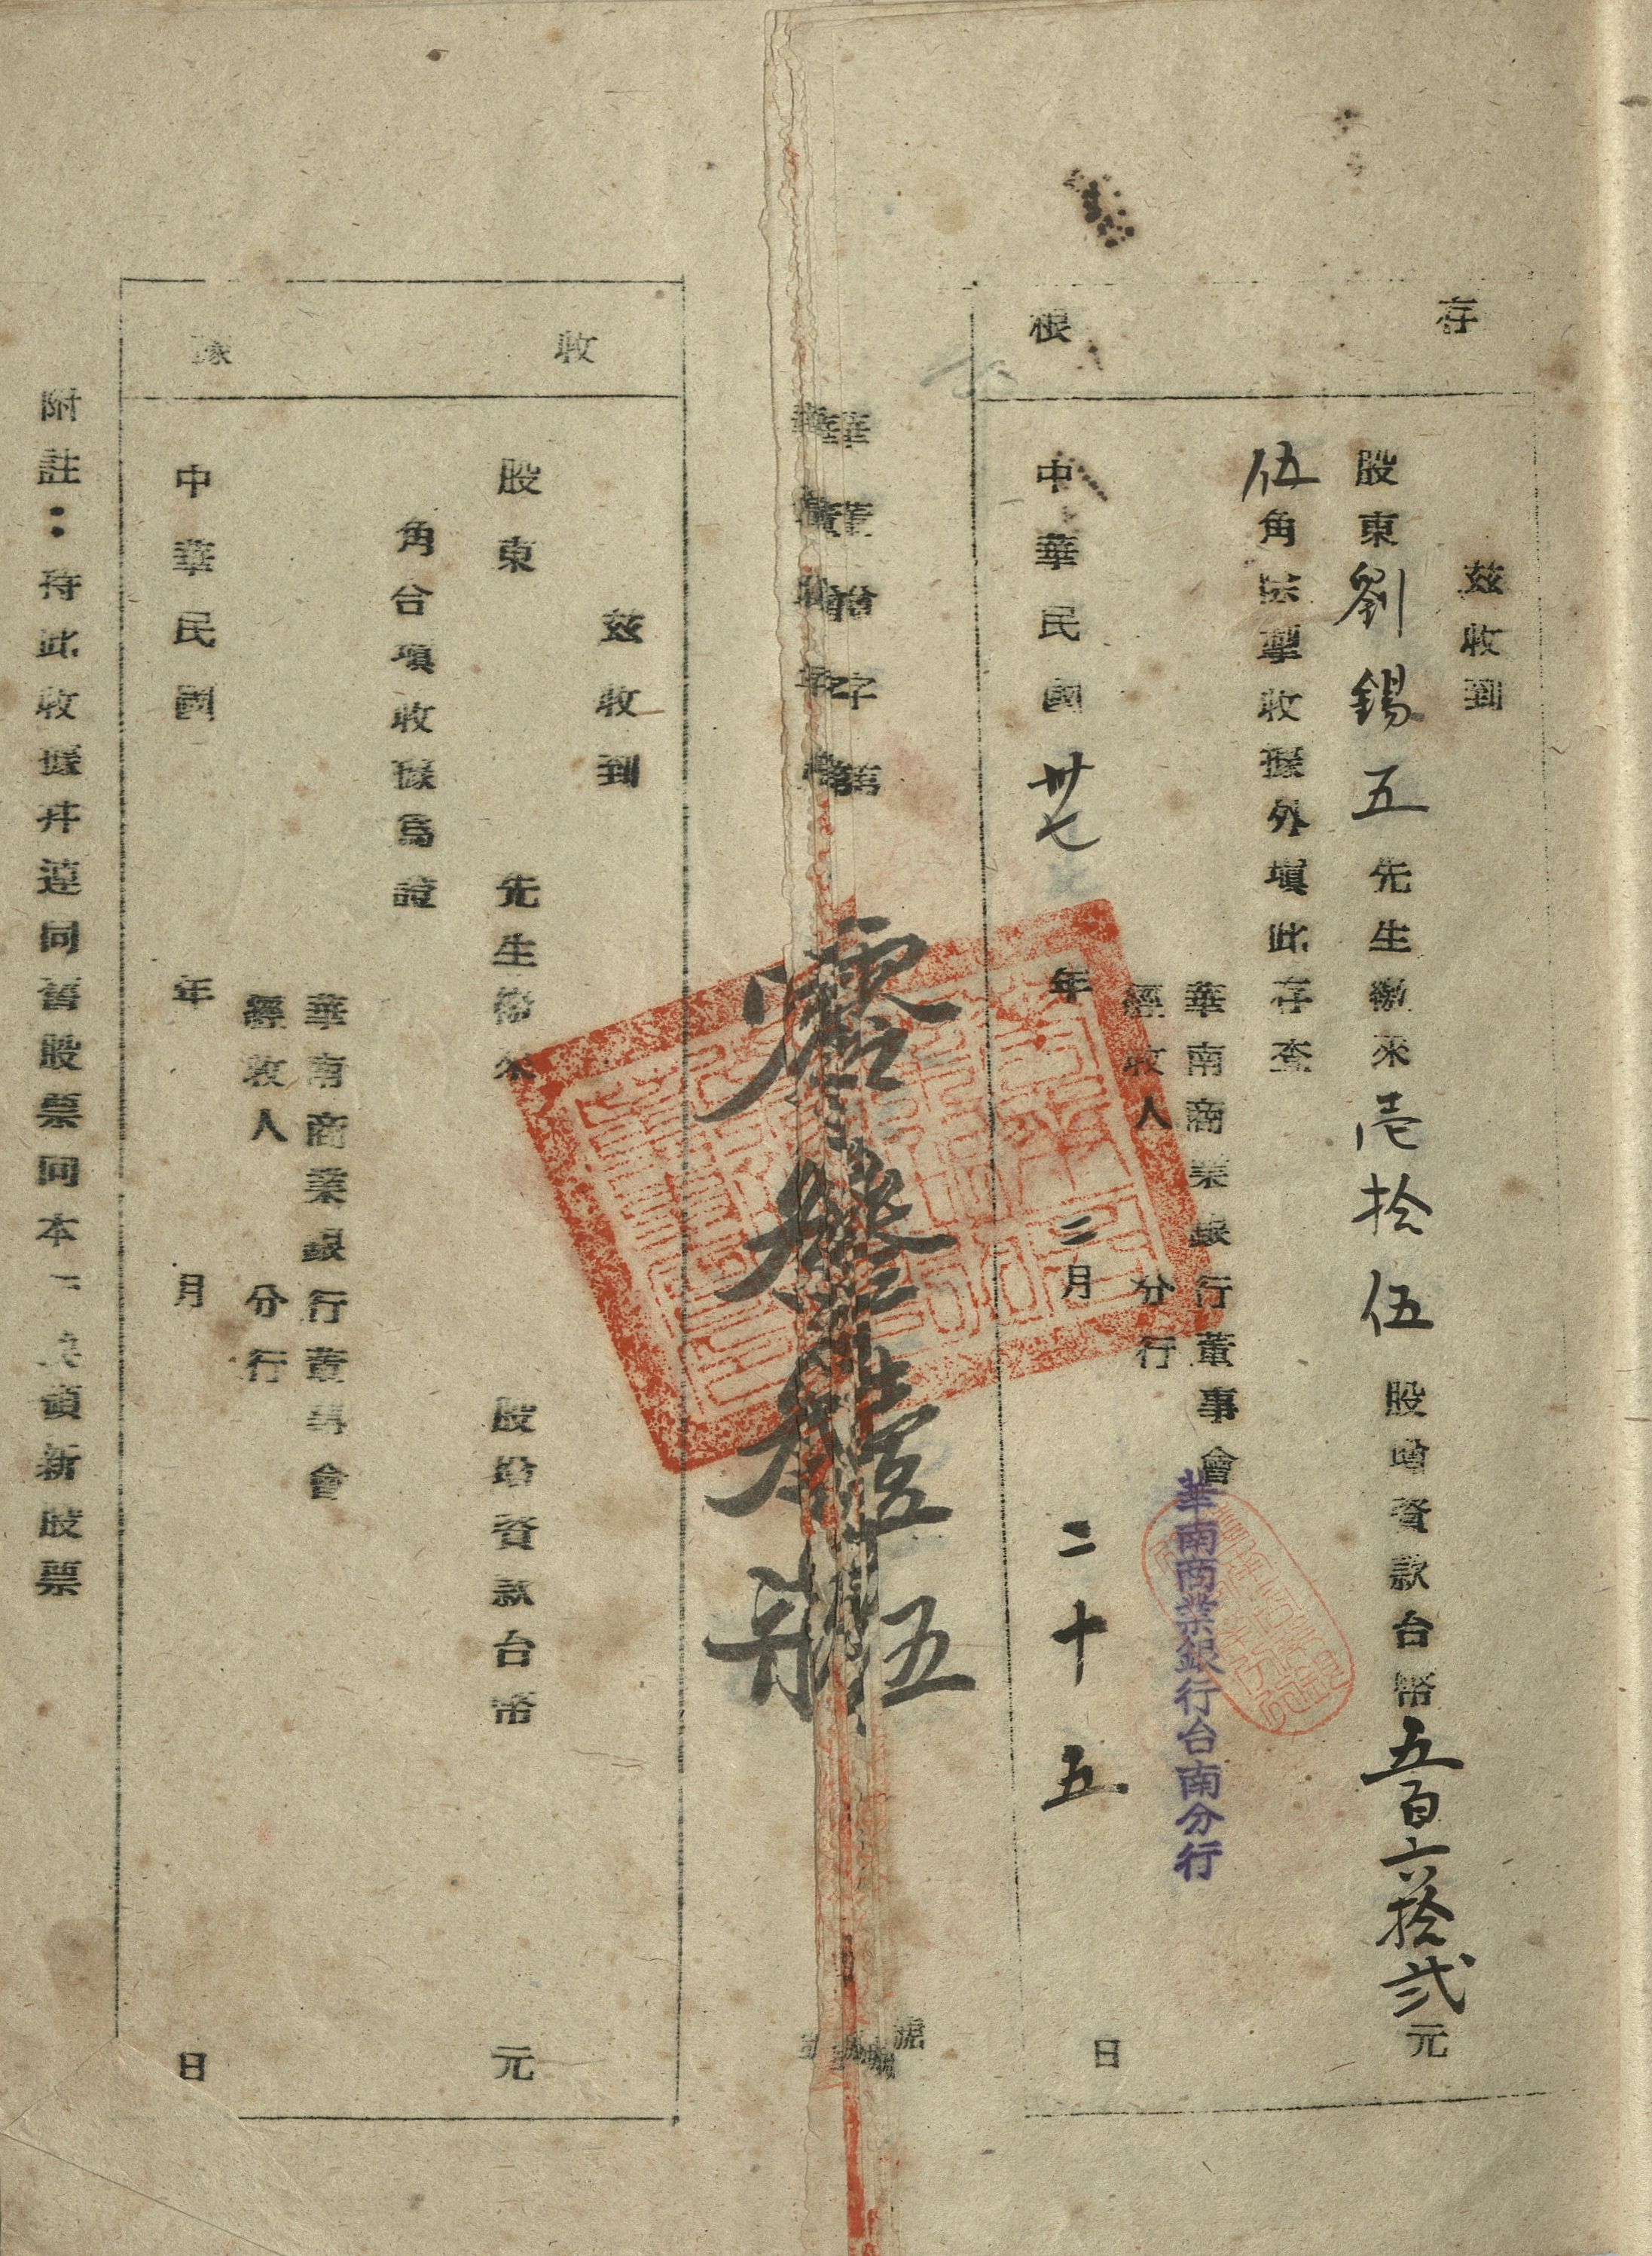 存根
茲收到
股東劉錫五先生繳來壱拾伍股增資款台幣五百六拾弍元
伍角除掣收據外填此存查
華南商業銀行董事會
華南商業銀行台南分行
經收人 分行
中華民國卅七年三月二十五日
華董台字第
號
收據
茲收到
股東 先生繳來 股增資款台幣 元
角合填收據為證
華南商業銀行董事會
經收人 分行
中華民國 年 月 日
附註：持此收據并連同舊股票向本行換領新股票